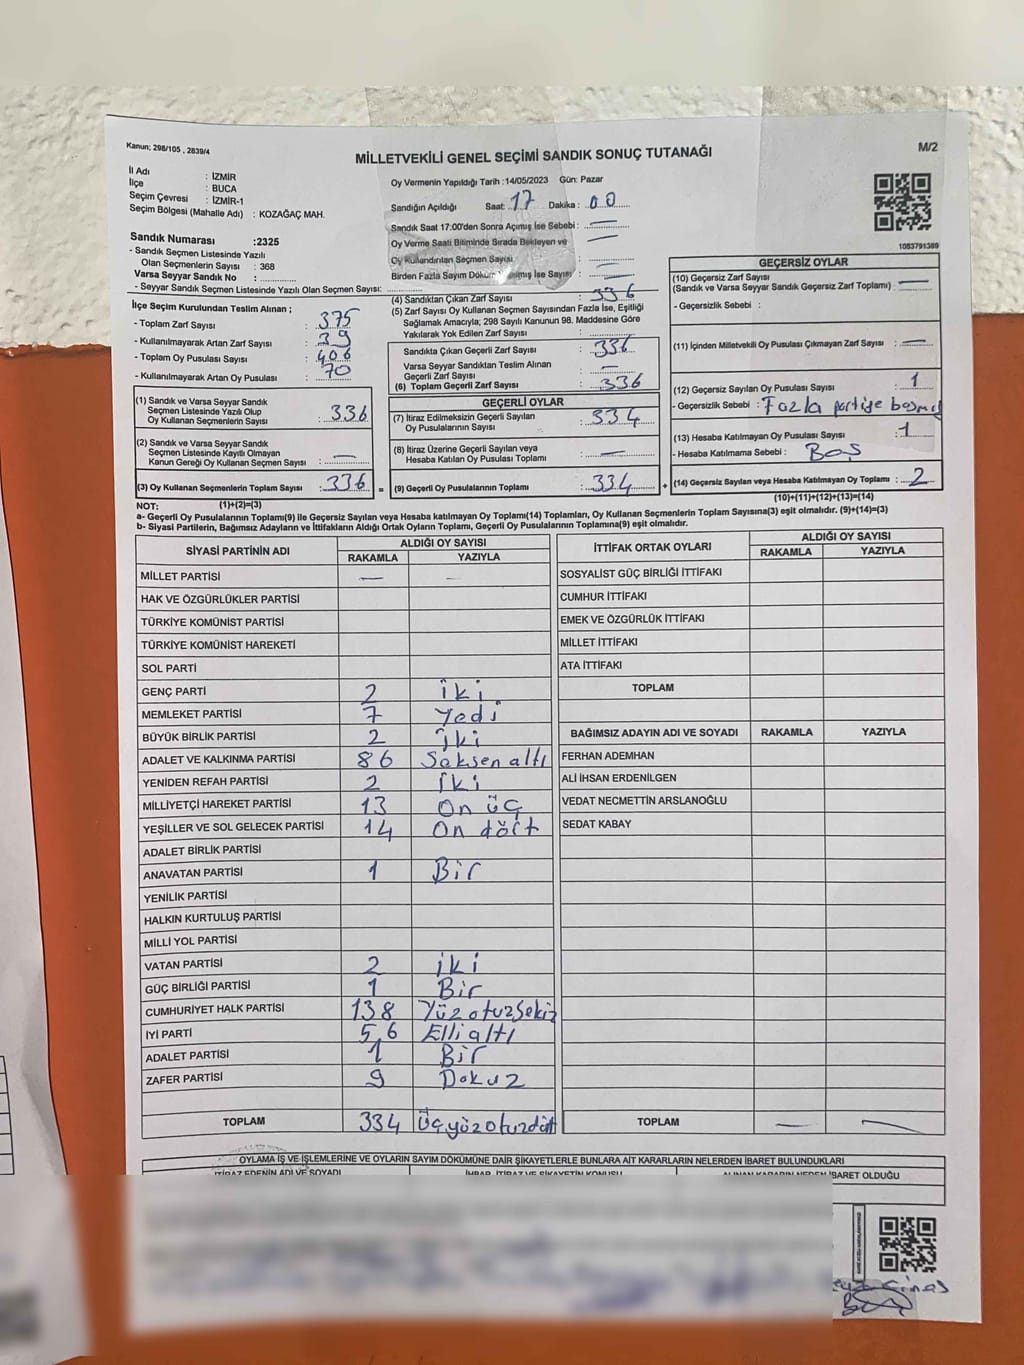 Kanun; 298/105 , 2839/4
MİLLETVEKİLİ GENEL SEÇİMİ SANDIK SONUÇ TUTANAĞI
M/2
İl Adı : İZMİR
İlçe : BUCA
Seçim Çevresi : İZMİR-1
Seçim Bölgesi (Mahalle Adı) : KOZAĞAÇ MAH.
Oy Vermenin Yapıldığı Tarih :14/05/2023 Gün: Pazar
Sandığın Açıldığı Saat: 17 Dakika : 00
Sandık Saat 17:00'den Sonra Açımış İse Sebebi : —
Oy Verme Saati Bitiminde Sırada Bekleyen ve
Oy Kullandırılan Seçmen Sayısı : —
Birden Fazla Sayım Döküm İse Sayısı : —
1083791389
Sandık Numarası :2325
- Sandık Seçmen Listesinde Yazılı
Olan Seçmenlerin Sayısı : 368
Varsa Seyyar Sandık No :
- Seyyar Sandık Seçmen Listesinde Yazılı Olan Seçmen Sayısı:
İlçe Seçim Kurulundan Teslim Alınan ;
- Toplam Zarf Sayısı : 375
- Kullanılmayarak Artan Zarf Sayısı : 39
- Toplam Oy Pusulası Sayısı : 406
- Kullanılmayarak Artan Oy Pusulası : 70
(1) Sandık ve Varsa Seyyar Sandık
Seçmen Listesinde Yazılı Olup
Oy Kullanan Seçmenlerin Sayısı : 336
(2) Sandık ve Varsa Seyyar Sandık
Seçmen Listesinde Kayıtlı Olmayan
Kanun Gereği Oy Kullanan Seçmen Sayısı : —
(3) Oy Kullanan Seçmenlerin Toplam Sayısı :336 =
(1)+(2)=(3)
(4) Sandıktan Çıkan Zarf Sayısı : 336
(5) Zarf Sayısı Oy Kullanan Seçmen Sayısından Fazla İse, Eşitliği
Sağlamak Amacıyla; 298 Sayılı Kanunun 98. Maddesine Göre
Yakılarak Yok Edilen Zarf Sayısı :
Sandıkta Çıkan Geçerli Zarf Sayısı : 336
Varsa Seyyar Sandıktan Teslim Alınan
Geçerli Zarf Sayısı : —
(6) Toplam Geçerli Zarf Sayısı : 336
GEÇERLİ OYLAR
(7) İtiraz Edilmeksizin Geçerli Sayılan
Oy Pusulalarının Sayısı : 334
(8) İtiraz Üzerine Geçerli Sayılan veya
Hesaba Katılan Oy Pusulası Toplamı : —
(9) Geçerli Oy Pusulalarının Toplamı : 334 +
GEÇERSİZ OYLAR
(10) Geçersiz Zarf Sayısı
(Sandık ve Varsa Seyyar Sandık Geçersiz Zarf Toplamı) : —
- Geçersizlik Sebebi :
(11) İçinden Milletvekili Oy Pusulası Çıkmayan Zarf Sayısı : —
(12) Geçersiz Sayılan Oy Pusulası Sayısı : 1
- Geçersizlik Sebebi : Fazla partiye basmış
(13) Hesaba Katılmayan Oy Pusulası Sayısı : 1
- Hesaba Katılmama Sebebi : Boş
(14) Geçersiz Sayılan veya Hesaba Katılmayan Oy Toplamı : 2
(10)+(11)+(12)+(13)=(14)
NOT:
a- Geçerli Oy Pusulalarının Toplamı(9) ile Geçersiz Sayılan veya Hesaba katılmayan Oy Toplamı(14) Toplamları, Oy Kullanan Seçmenlerin Toplam Sayısına(3) eşit olmalıdır. (9)+(14)=(3)
b- Siyasi Partilerin, Bağımsız Adayların ve İttifakların Aldığı Ortak Oyların Toplamı, Geçerli Oy Pusulalarının Toplamına(9) eşit olmalıdır.
SİYASİ PARTİNİN ADI ALDIĞI OY SAYISI
RAKAMLA YAZIYLA
MİLLET PARTİSİ — —
HAK VE ÖZGÜRLÜKLER PARTİSİ
TÜRKİYE KOMÜNİST PARTİSİ
TÜRKİYE KOMÜNİST HAREKETİ
SOL PARTİ
GENÇ PARTİ 2 İki
MEMLEKET PARTİSİ 7 Yedi
BÜYÜK BİRLİK PARTİSİ 2 İki
ADALET VE KALKINMA PARTİSİ 86 Saksen altı
YENİDEN REFAH PARTİSİ 2 İki
MİLLİYETÇİ HAREKET PARTİSİ 13 On üç
YEŞİLLER VE SOL GELECEK PARTİSİ 14 On dört
ADALET BİRLİK PARTİSİ
ANAVATAN PARTİSİ 1 Bir
YENİLİK PARTİSİ
HALKIN KURTULUŞ PARTİSİ
MİLLİ YOL PARTİSİ
VATAN PARTİSİ 2 iki
GÜÇ BİRLİĞİ PARTİSİ 1 Bir
CUMHURİYET HALK PARTİSİ 138 Yüzotuzsekiz
İYİ PARTİ 56 Elli altı
ADALET PARTİSİ 1 Bir
ZAFER PARTİSİ 9 Dokuz
TOPLAM 334 Üçyüzotuzdört
İTTİFAK ORTAK OYLARI ALDIĞI OY SAYISI
RAKAMLA YAZIYLA
SOSYALİST GÜÇ BİRLİĞİ İTTİFAKI
CUMHUR İTTİFAKI
EMEK VE ÖZGÜRLÜK İTTİFAKI
MİLLET İTTİFAKI
ATA İTTİFAKI
TOPLAM
BAĞIMSIZ ADAYIN ADI VE SOYADI RAKAMLA YAZIYLA
FERHAN ADEMHAN
ALİ İHSAN ERDENİLGEN
VEDAT NECMETTİN ARSLANOĞLU
SEDAT KABAY
TOPLAM — —
OYLAMA İŞ VE İŞLEMLERİNE VE OYLARIN SAYIM DÖKÜMÜNE DAİR ŞİKAYETLERLE BUNLARA AİT KARARLARIN NELERDEN İBARET BULUNDUKLARI
İTİRAZ EDENİN ADI VE SOYADI İHBAR, İTİRAZ VE ŞİKAYETİN KONUSU ALINAN KARARIN NEDEN İBARET OLDUĞU